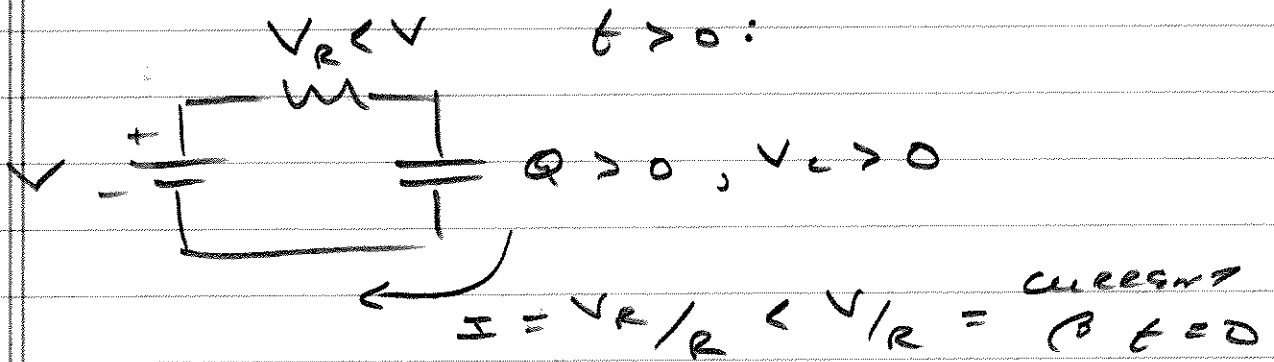 V_R < V t > 0 :
+
V
-
Q > 0 , V_C > 0
I = V_R/R < V/R = current @ t = 0